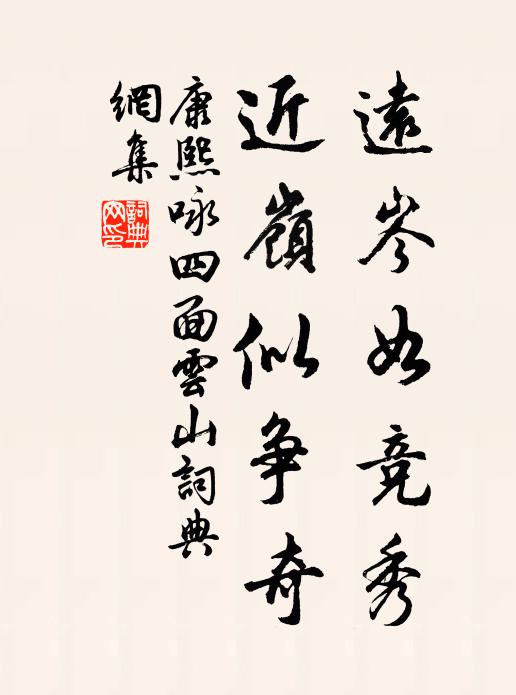 遠岑如競秀
近嶺似爭奇
康熙咏四面雲山詞典
網集
詞典
网印